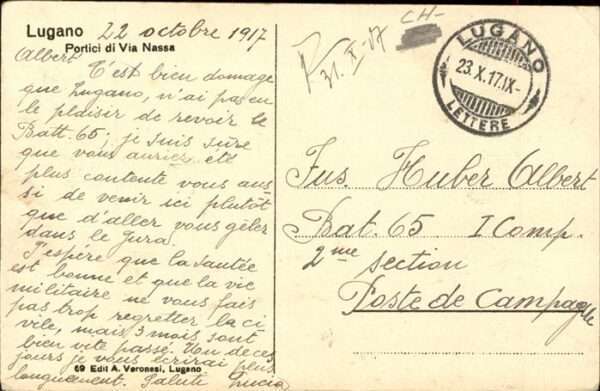 Lugano 22 octobre 1917
Portici di Via Nassa
Albert
C'est bien domage
que Lugano, n'ai pas eu
le plaisir de revoir le
Batt. 65; je suis sûre
que vous auriez été
plus contente vous aus
si de venir ici plutôt
que d'aller vous gêler
dans le Jura.
J'espére que la santée
est bonne et que la vie
militaire ne vous fais
pas trop regretter la ci
vile, mais 3 mois sont
bien vite passé. Un de ces
jours je vous écrirai plus
longuement. Saluti Lucia
69 Edit A. Veronesi, Lugano
31. X - 17
CH-
LUGANO
23.X.17.IX-
LETTERE
Fus. Huber Albert
Bat. 65 I Comp.
2me section
Poste de Campagne